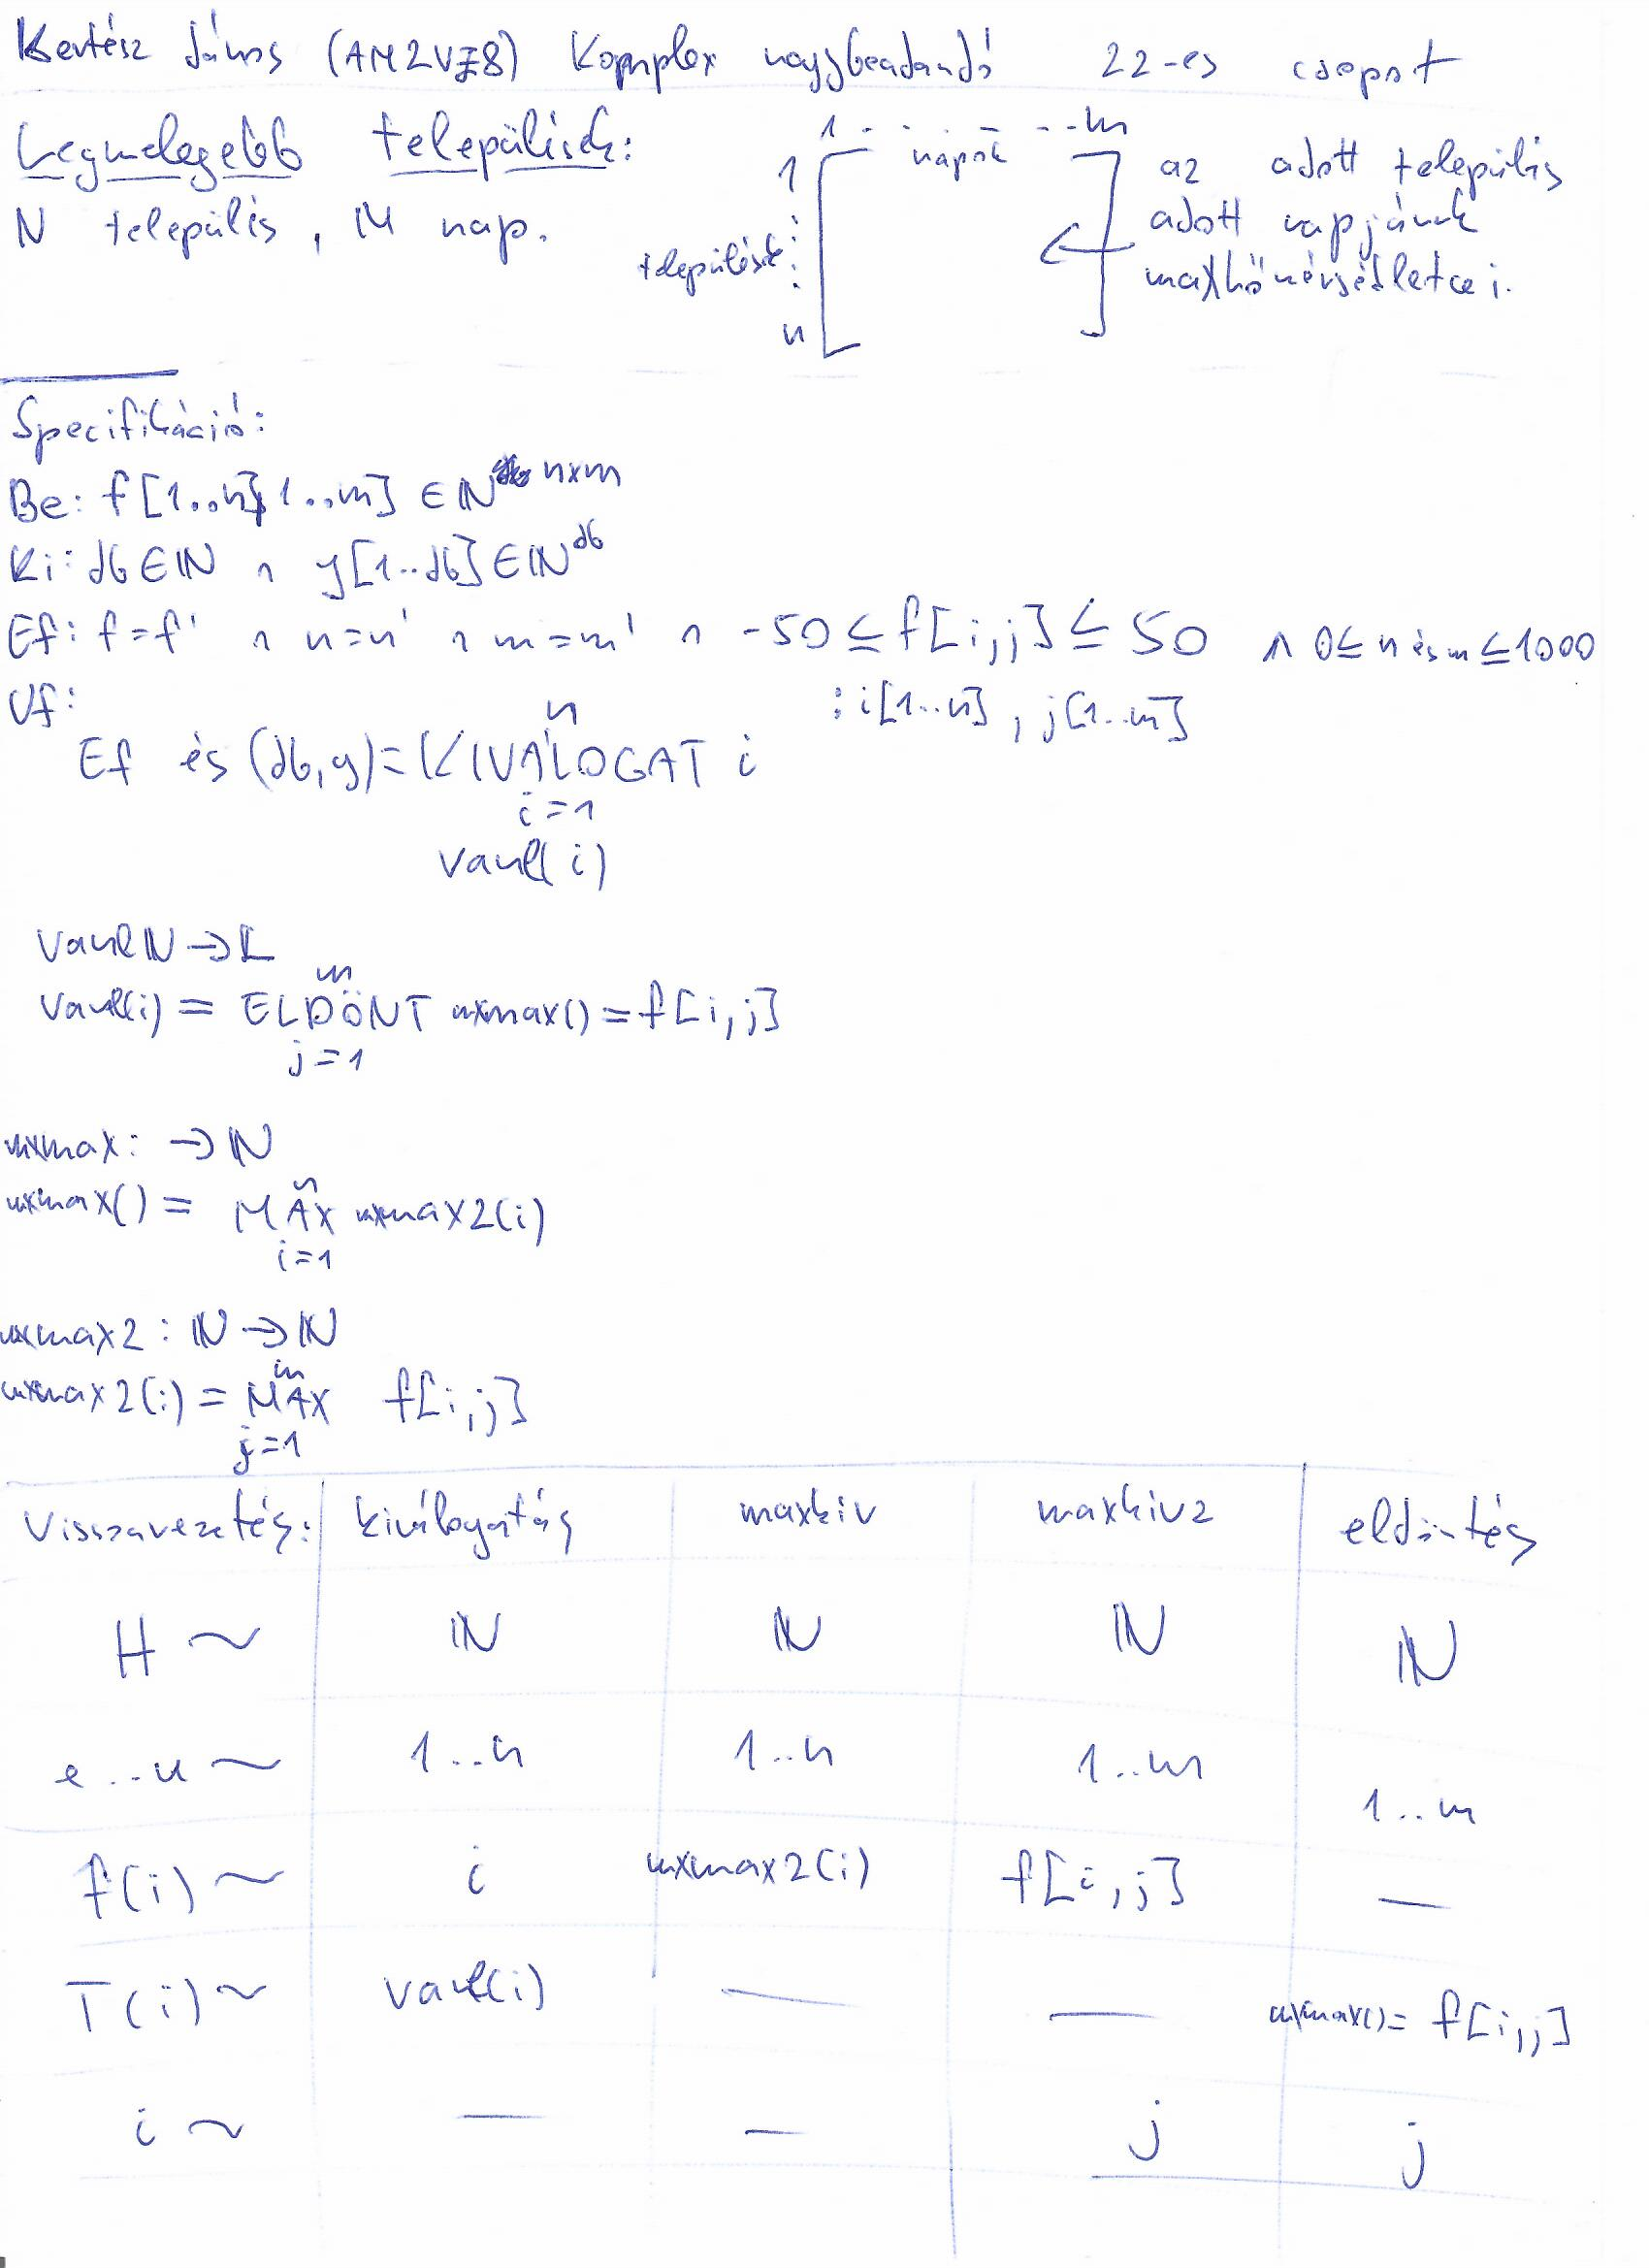 Kertész János (AM2VZ8) Komplex nagybeadandó 22-es csoport
Legmelegebb települések:
N település, M nap.
1 . . . . . . m
napok
1
települések
n
az adott település
adott napjának
maxhőmérsékletei.
Specifikáció:
Be: f[1..n,1..m] ∈ ℕ^nxm
Ki: db ∈ ℕ ∧ y[1..db] ∈ ℕ^db
Ef: f=f' ∧ n=n' ∧ m=m' ∧ -50 ≤ f[i,j] ≤ 50 ∧ 0≤ n és m ≤1000
: i[1..n], j[1..m]
Uf:
n
Ef és (db,y)= KIVÁLOGAT i
i=1
vane(i)
vane ℕ → 𝕃
m
vane(i) = ELDÖNT mxmax() = f[i,j]
j=1
mxmax: → ℕ
n
mxmax() = MAX mxmax2(i)
i=1
mxmax2 : ℕ → ℕ
m
mxmax2(i) = MAX f[i,j]
j=1
Visszavezetés: kiválogatás maxkiv maxkiv2 eldöntés
H ~ ℕ ℕ ℕ ℕ
e..u ~ 1..n 1..n 1..m 1..m
f(i) ~ i mxmax2(i) f[i,j] —
T(i) ~ vane(i) — — mxmax()= f[i,j]
i ~ — — j j